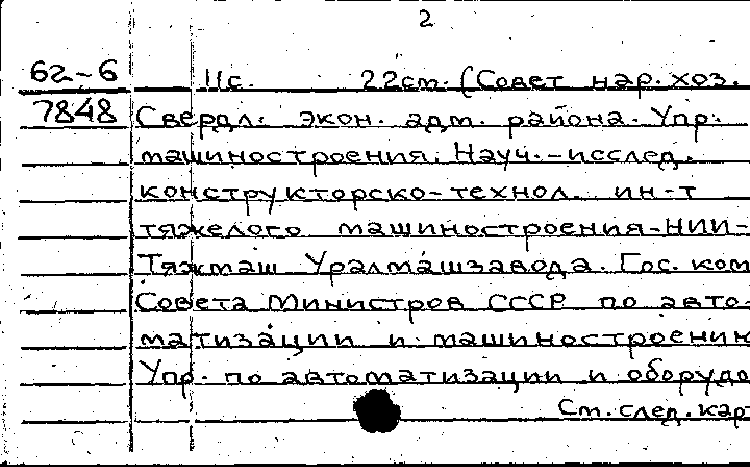 2
62-6 11с. 22см. (Совет нар. хоз.
7848 Свердл. экон. адм. района. Упр.
машиностроения. Науч.-исслед.
конструкторско-технол. ин-т
тяжелого машиностроения-НИИ-
Тяжмаш Уралмашзавода. Гос. ком
Совета Министров СССР по авто-
матизации и машиностроению
Упр. по автоматизации и оборудо
См. след. кар